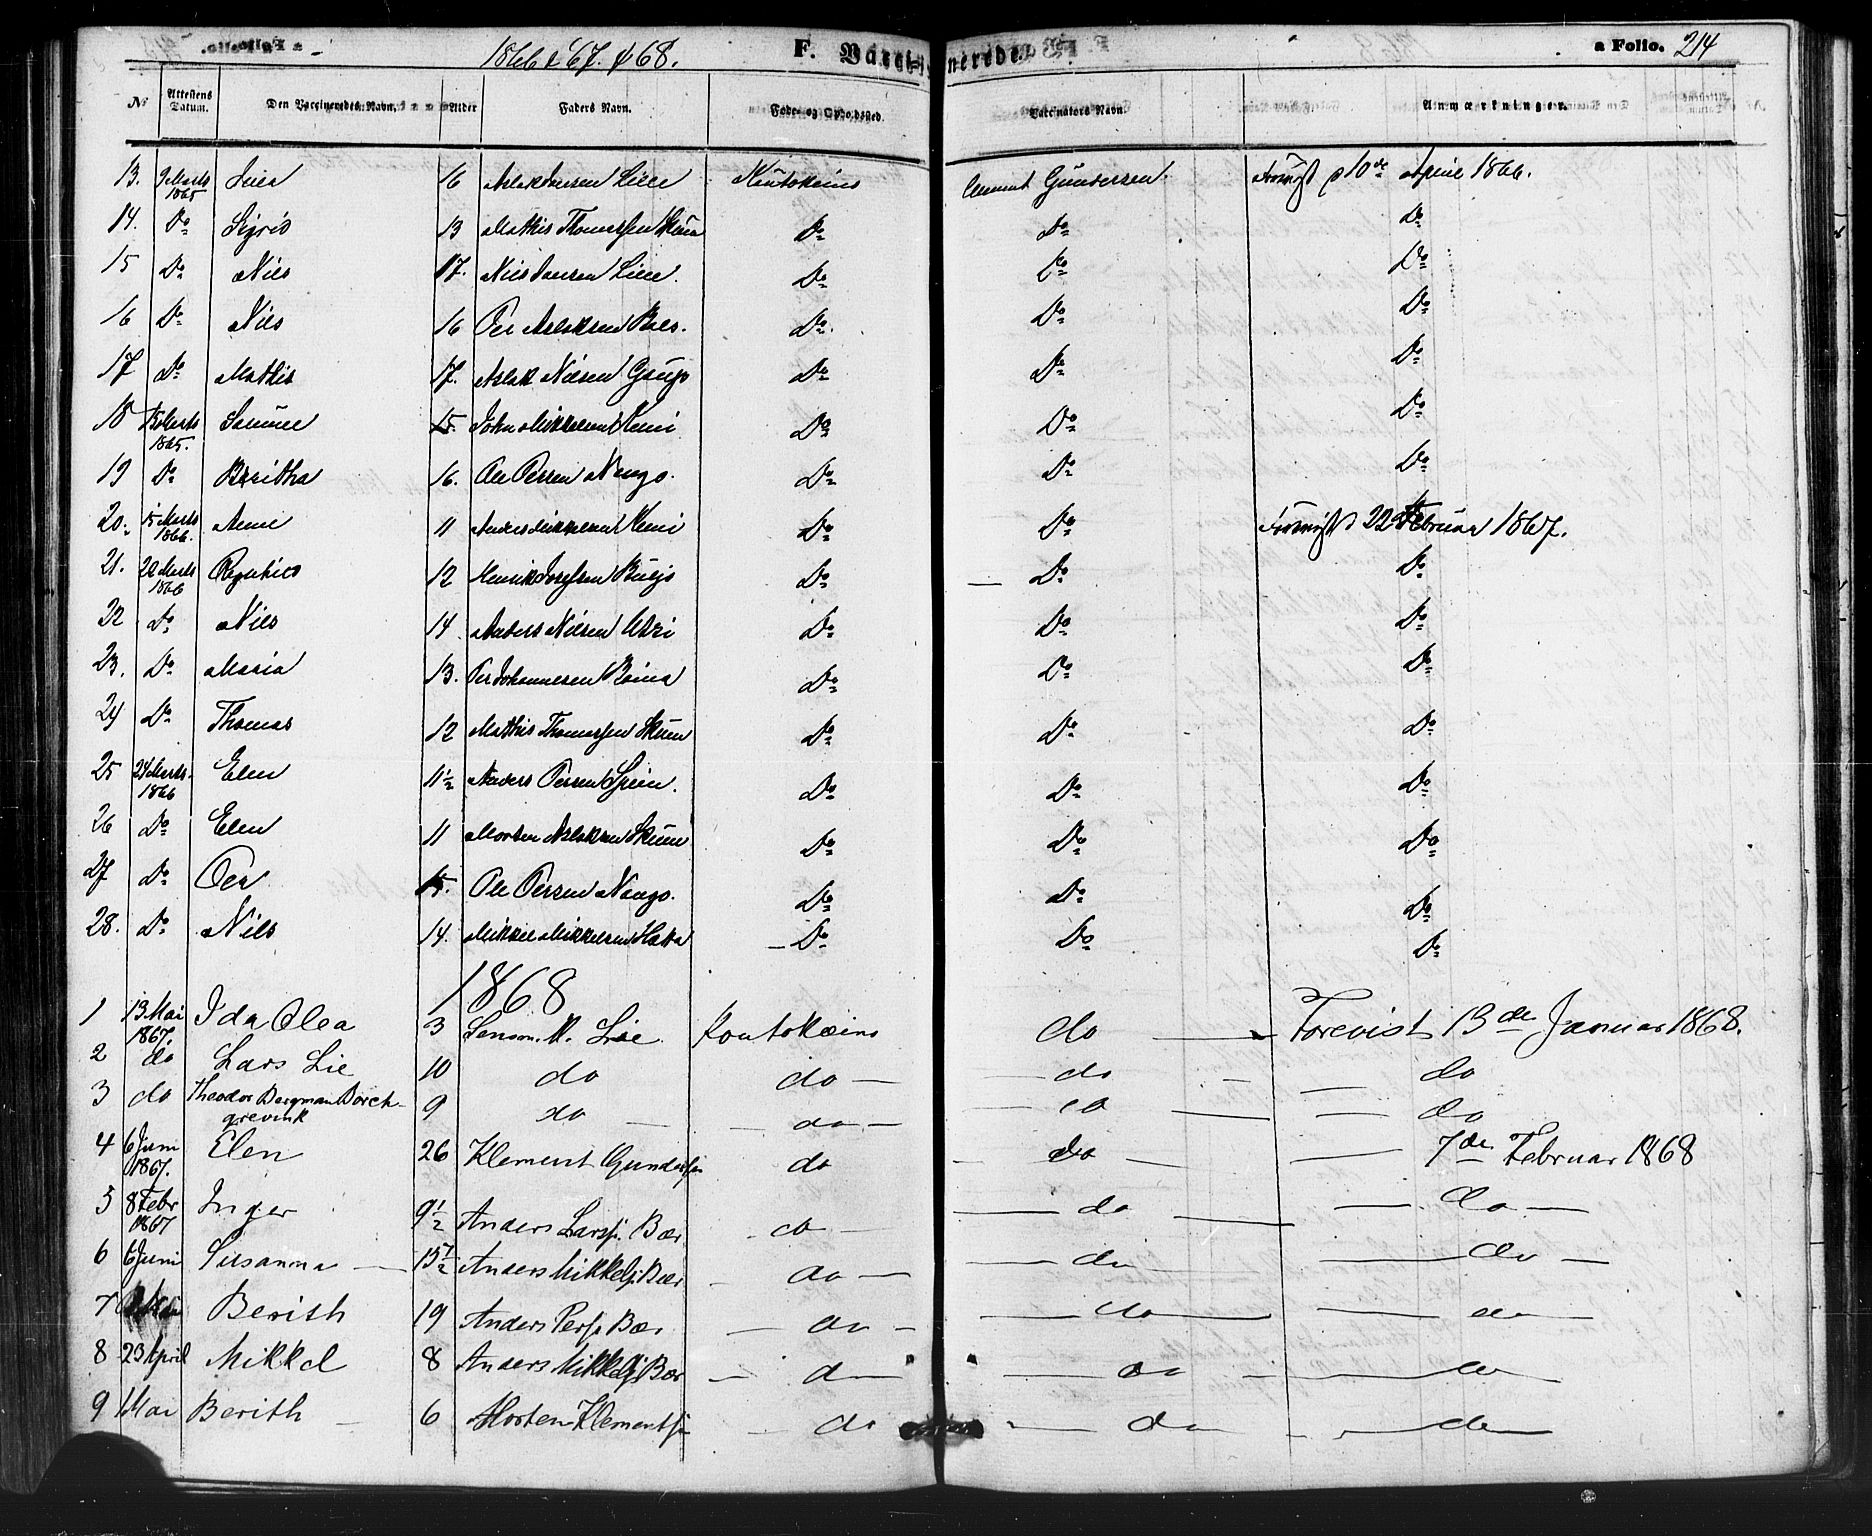 1866 & 67. & 68. F. Vaccinerede. a Folio. 214
No Attestens Datum. Den Vaccineredes Navn. Alder Faders Navn. Føde- og Opholdssted. Vaccinators Navn. Anmærkninger.
13. 9 Marts 1865 16 Aslak Kautokeino Clement Gundersen. Forevist d 10de April 1866.
14. Do Sigrid 13 Mathis Thomassen Skum Do Do Do
15 Do Nils 17. Nils Do Do Do
16 Do Nils 16 Per Aslaksen Do Do Do
17 Do Mathis 17. Aslak Nilsen Gaup Do Do Do
18 Marts 1865. 15. John Mikkelsen Hemi Do Do Do
19 Do Beritha 16. Ole Persen Nango. Do Do Do
20. 15 Marts 1866. Anne 11 Anders Mikkelsen Hemi Do Do Forevist 22 Februar 1867.
21. 20 Marts 1866 12 Henrik Josefsen Do Do Do
22 Do Nils 14 Anders Nilsen Utsi Do Do Do
23. Do Maria 13. Per Johannesen Do Do Do
24 Do Thomas 12 Mathis Thomassen Skum Do Do Do
25 24 Marts 1866 Elen 11½ Anders Persen Spein. Do Do Do
26 Do Elen 11 Morten Aslaksen Skum Do Do Do
27 Do Per 15. Ole Persen Nango. Do Do Do
28. Do Nils 14. Mikkel Mikkelsen Hætta Do Do Do
1868
1 13 Mai 1867. Ida Olea 3 M. Lie Koutokæino do Forevist 13de Januar 1868.
2 do Lars Lie 10 do do do do
3 do Theodor Bergman Borchgrevink 9 do do do do
4 6 Juni 1867. Elen 26 Klement Gunders. do do 7de Februar 1868
5 8 Febr 1867 Inger 9½ Anders Larss. Bær do do do
6 6 Juni Susanna Anders Mikkels. Bær do do do
7 Berith 19 Anders Pers. Bær do do do
8 23 April Mikkel 8 Anders Mikkels. Bær do do do
9 1 Mai Berith 6 Morten Klements. do do do